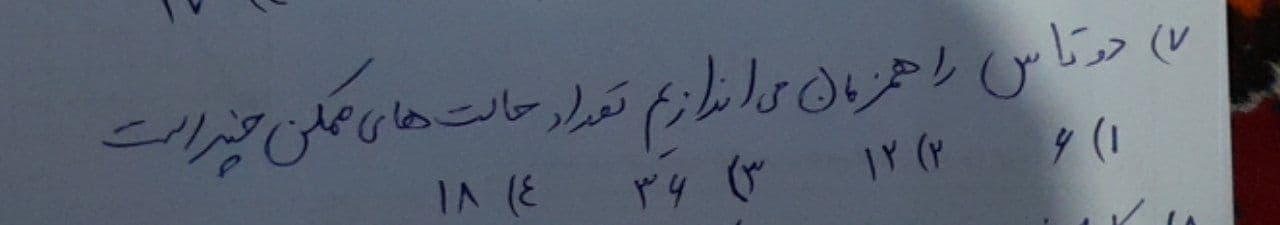 ۷) دو تاس را همزمان می اندازیم تعداد حالت های ممکن چند است
۱) ۶ ۲) ۱۲ ۳) ۳۶ ٤) ۱۸